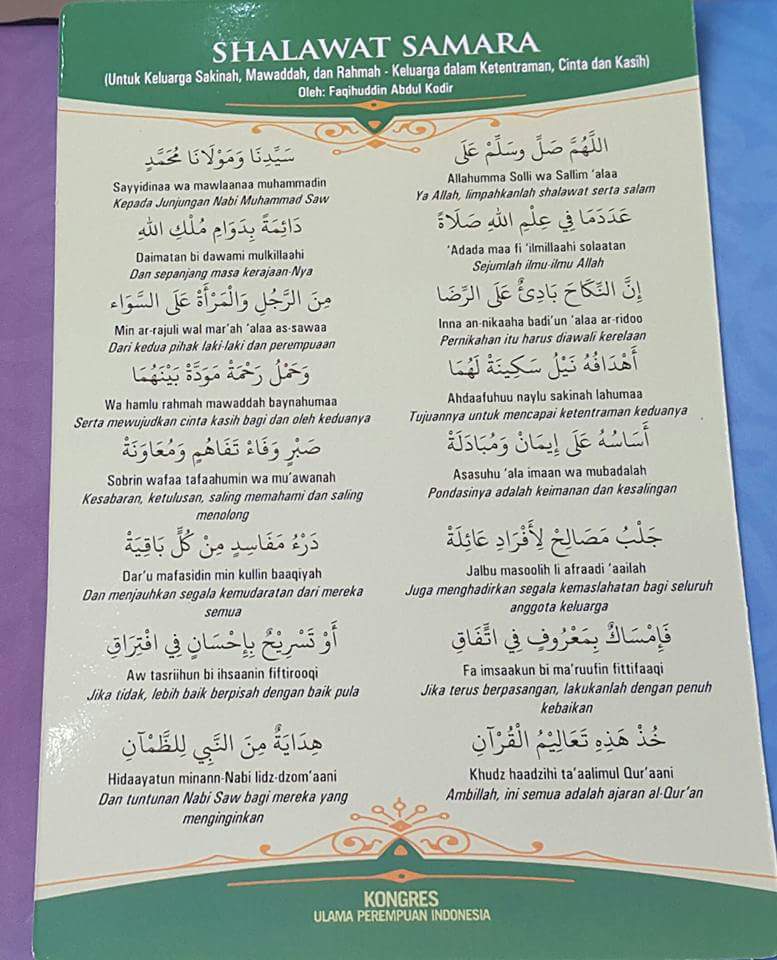 SHALAWAT SAMARA
(Untuk Keluarga Sakinah, Mawaddah, dan Rahmah - Keluarga dalam Ketentraman, Cinta dan Kasih)
Oleh: Faqihuddin Abdul Kodir
اللَّهُمَّ صَلِّ وسَلِّمْ عَلَى
Allahumma Solli wa Sallim ‘alaa
Ya Allah, limpahkanlah shalawat serta salam
سَيِّدِنَا وَمَوْلَانَا مُحَمَّدٍ
Sayyidinaa wa mawlaanaa muhammadin
Kepada Junjungan Nabi Muhammad Saw
عَدَدَمَا فِي عِلْمِ اللهِ صَلَاةً
‘Adada maa fi ‘ilmillaahi solaatan
Sejumlah ilmu-ilmu Allah
دَائِمَةً بِدَوَامِ مُلْكِ اللهِ
Daimatan bi dawami mulkillaahi
Dan sepanjang masa kerajaan-Nya
إِنَّ النِّكَاحَ بَادِئٌ عَلَى الرِّضَا
Inna an-nikaaha badi’un ‘alaa ar-ridoo
Pernikahan itu harus diawali kerelaan
مِنَ الرَّجُلِ وَالْمَرْأَةِ عَلَى السَّوَاء
Min ar-rajuli wal mar’ah ‘alaa as-sawaa
Dari kedua pihak laki-laki dan perempuaan
أَهْدَافُهُ نَيْلُ سَكِينَةْ لَهُمَا
Ahdaafuhuu naylu sakinah lahumaa
Tujuannya untuk mencapai ketentraman keduanya
وَحَمْلُ رَحْمَةْ مَوَدَّةْ بَيْنَهُمَا
Wa hamlu rahmah mawaddah baynahumaa
Serta mewujudkan cinta kasih bagi dan oleh keduanya
أَسَاسُهُ عَلَى إِيمَانْ وَمُبَادَلَةْ
Asasuhu ‘ala imaan wa mubadalah
Pondasinya adalah keimanan dan kesalingan
صَبْرٍ وَفَاءْ تَفَاهُمٍ وَمُعَاوَنَةْ
Sobrin wafaa tafaahumin wa mu’awanah
Kesabaran, ketulusan, saling memahami dan saling
menolong
جَلْبُ مَصَالِحْ لِأَفْرَادِ عَائِلَةْ
Jalbu masoolih li afraadi ‘aailah
Juga menghadirkan segala kemaslahatan bagi seluruh
anggota keluarga
دَرْءُ مَفَاسِدٍ مِنْ كُلِّ بَاقِيَةْ
Dar’u mafasidin min kullin baaqiyah
Dan menjauhkan segala kemudaratan dari mereka
semua
فَإِمْسَاكٌ بِمَعْرُوفٍ فِي اتِّفَاقِ
Fa imsaakun bi ma’ruufin fittifaaqi
Jika terus berpasangan, lakukanlah dengan penuh
kebaikan
أَوْ تَسْرِيْحٌ بِإِحْسَانٍ فِي افْتِرَاقِ
Aw tasriihun bi ihsaanin fiftirooqi
Jika tidak, lebih baik berpisah dengan baik pula
خُذْ هَذِهِ تَعَالِيْمُ الْقُرْآنِ
Khudz haadzihi ta’aalimul Qur’aani
Ambillah, ini semua adalah ajaran al-Qur’an
هِدَايَةٌ مِنَ النَّبِي لِلظَّمْآنِ
Hidaayatun minann-Nabi lidz-dzom’aani
Dan tuntunan Nabi Saw bagi mereka yang
menginginkan
KONGRES
ULAMA PEREMPUAN INDONESIA